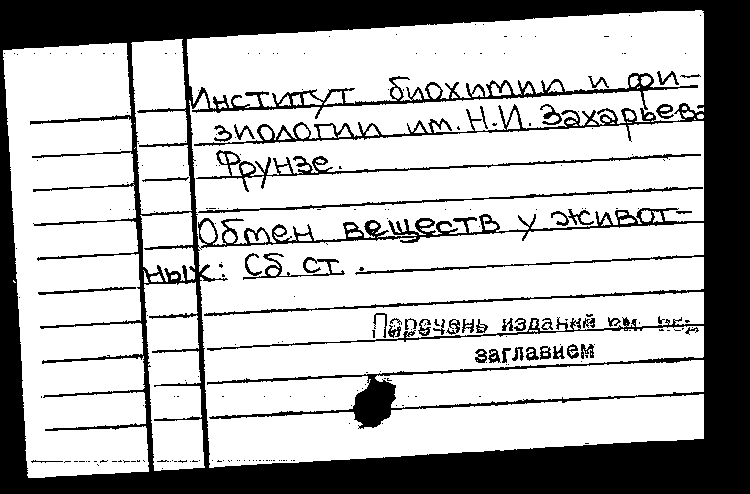 Институт биохимии и фи-
зиологии им. Н.И. Захарьева
Фрунзе.
Обмен веществ у живот-
ных: Сб. ст. .
Перечень изданий см. под
заглавием